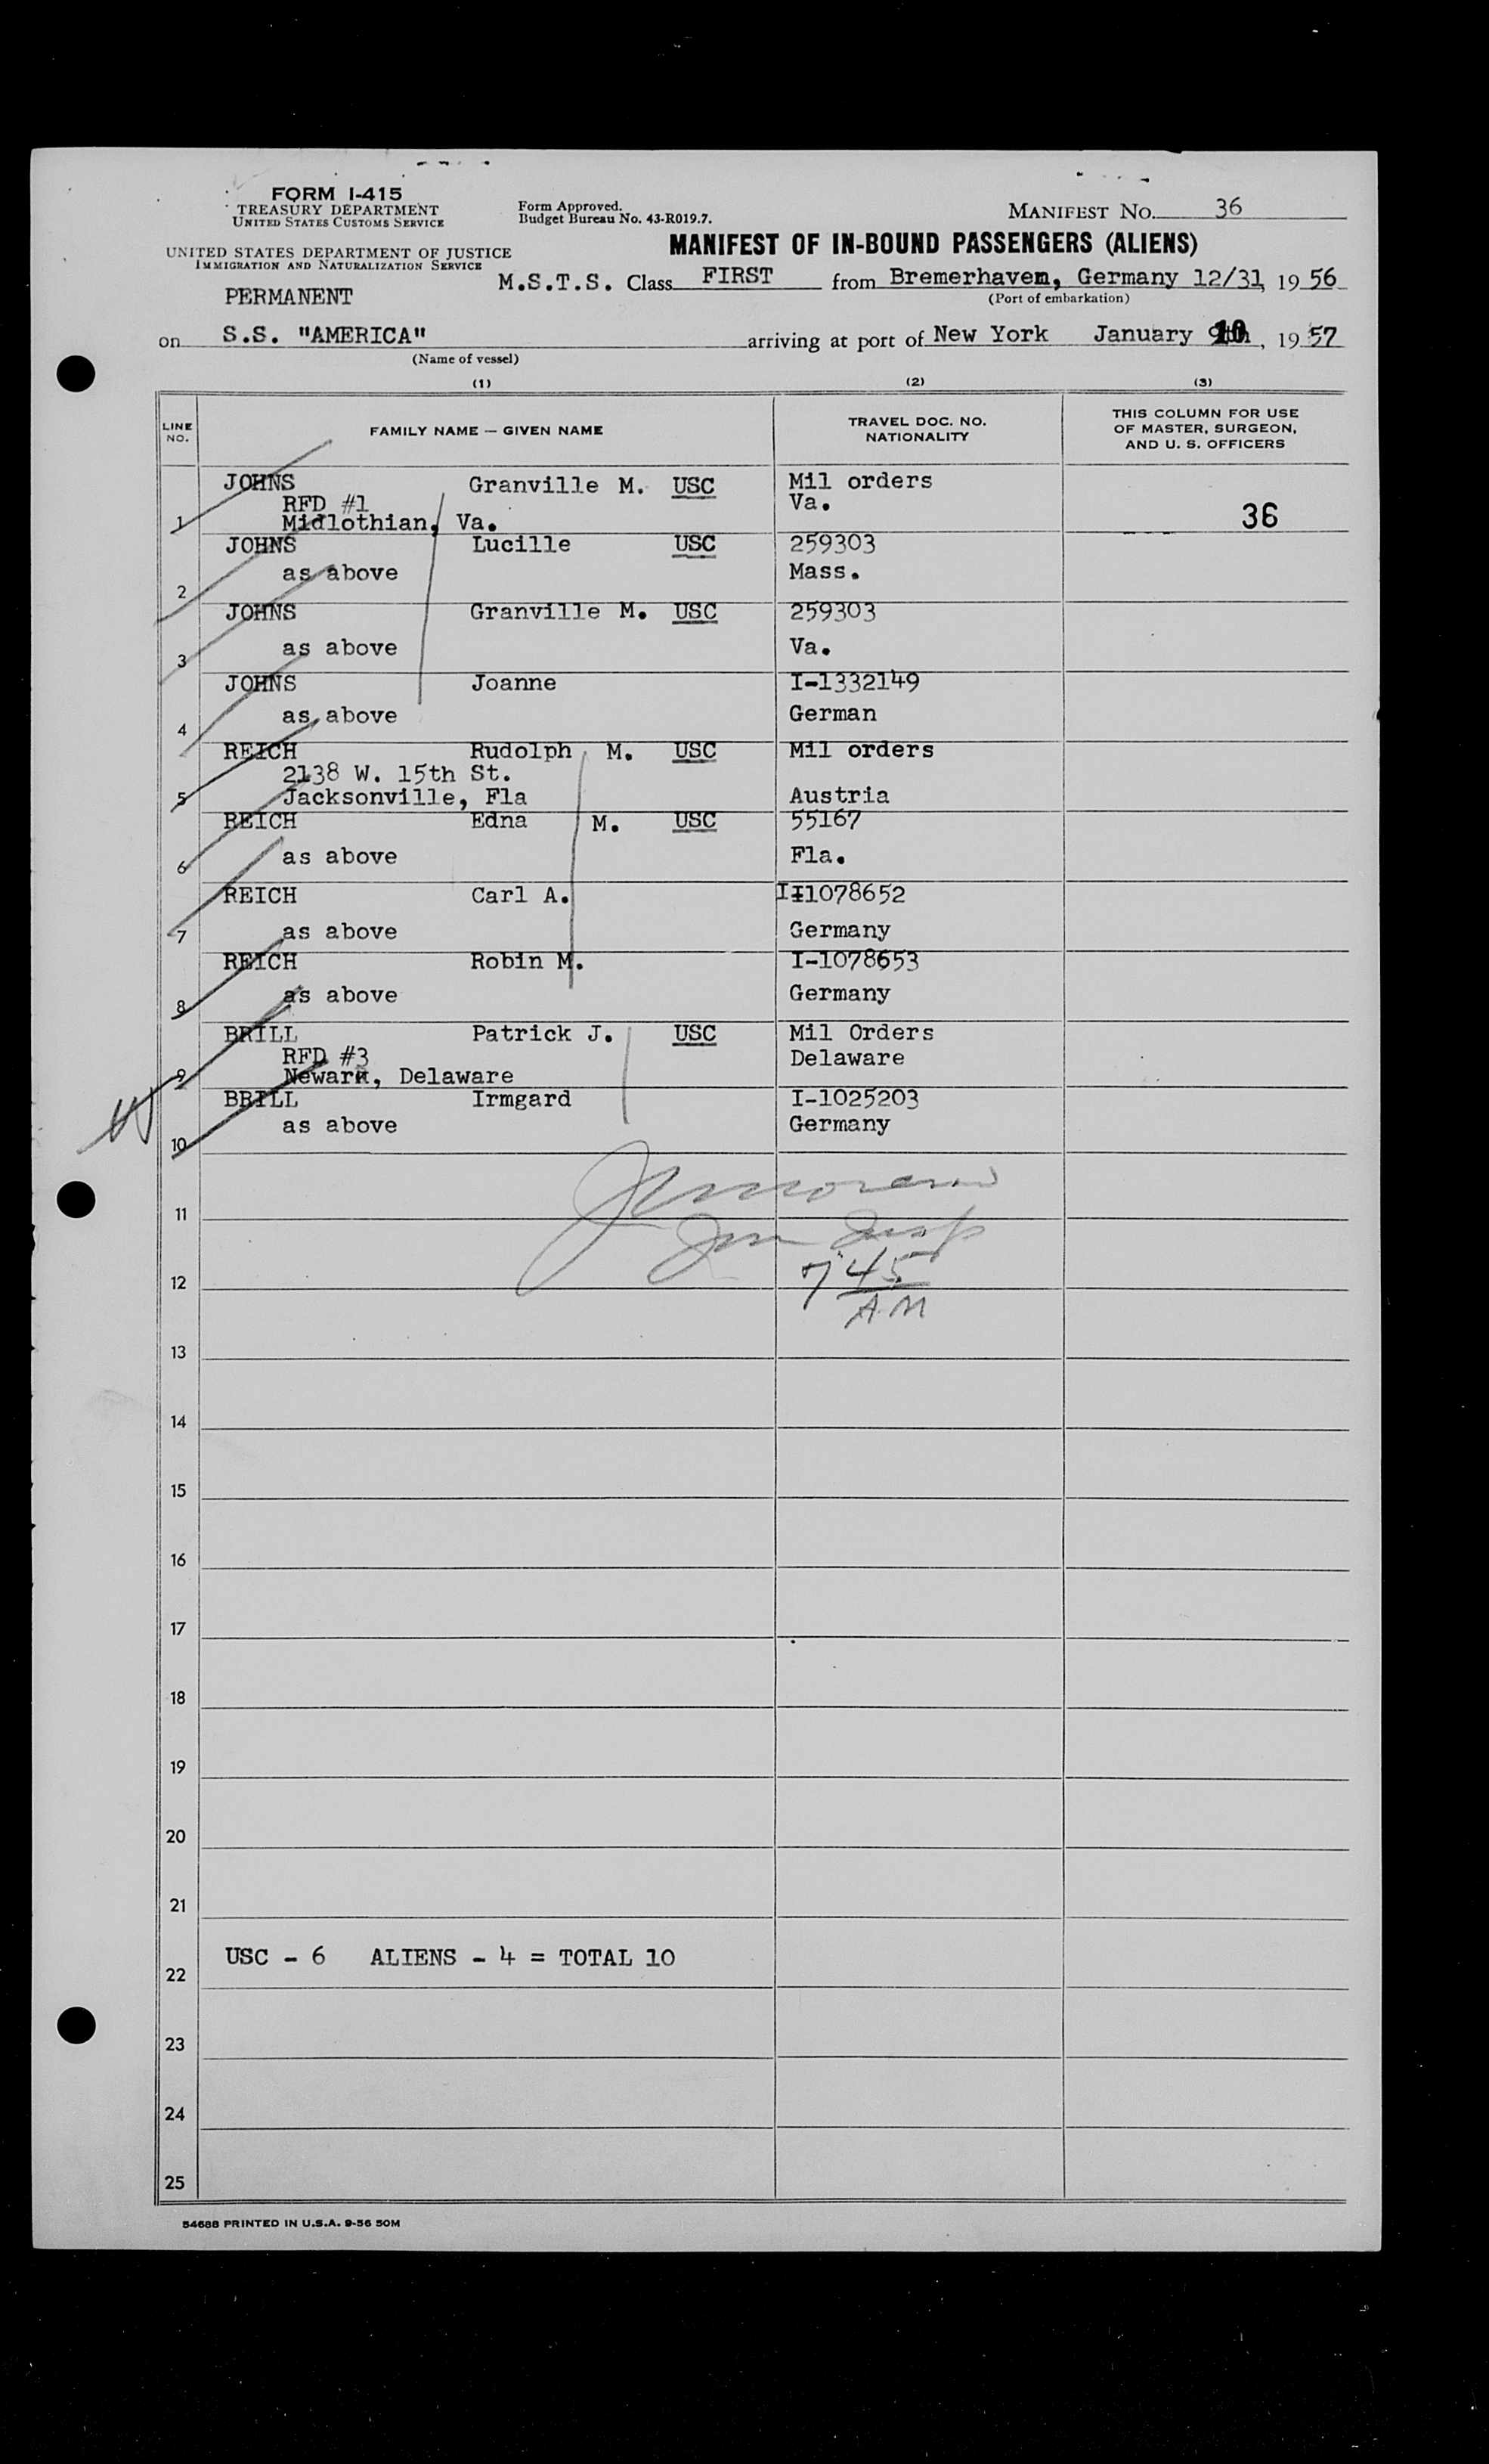 FORM I-415
TREASURY DEPARTMENT
UNITED STATES CUSTOMS SERVICE
Form Approved.
Budget Bureau No. 43-R019.7.
MANIFEST No. 36
UNITED STATES DEPARTMENT OF JUSTICE
IMMIGRATION AND NATURALIZATION SERVICE
MANIFEST OF IN-BOUND PASSENGERS (ALIENS)
PERMANENT
M.S.T.S. Class FIRST from Bremerhaven, Germany 12/31, 19 56
(Port of embarkation)
on S.S. "AMERICA" arriving at port of New York January 10, 19 57
(Name of vessel)
(1) (2) (3)
LINE NO.
FAMILY NAME — GIVEN NAME
TRAVEL DOC. NO.
NATIONALITY
THIS COLUMN FOR USE
OF MASTER, SURGEON,
AND U. S. OFFICERS
JOHNS Granville M. USC Mil orders
RFD #1 Va.
1 Midlothian, Va. 36
JOHNS Lucille USC 259303
2 as above Mass.
JOHNS Granville M. USC 259303
3 as above Va.
JOHNS Joanne I-1332149
4 as above German
REICH Rudolph M. USC Mil orders
2138 W. 15th St.
5 Jacksonville, Fla Austria
REICH Edna M. USC 55167
6 as above Fla.
REICH Carl A. I-1078652
7 as above Germany
REICH Robin M. I-1078653
8 as above Germany
BRILL Patrick J. USC Mil Orders
RFD #3 Delaware
9 Newark, Delaware
BRILL Irmgard I-1025203
10 as above Germany
11
Imm Insp
12 7 45
AM
13
14
15
16
17
18
19
20
21
22 USC - 6 ALIENS - 4 = TOTAL 10
23
24
25
54688 PRINTED IN U.S.A. 9-56 50M